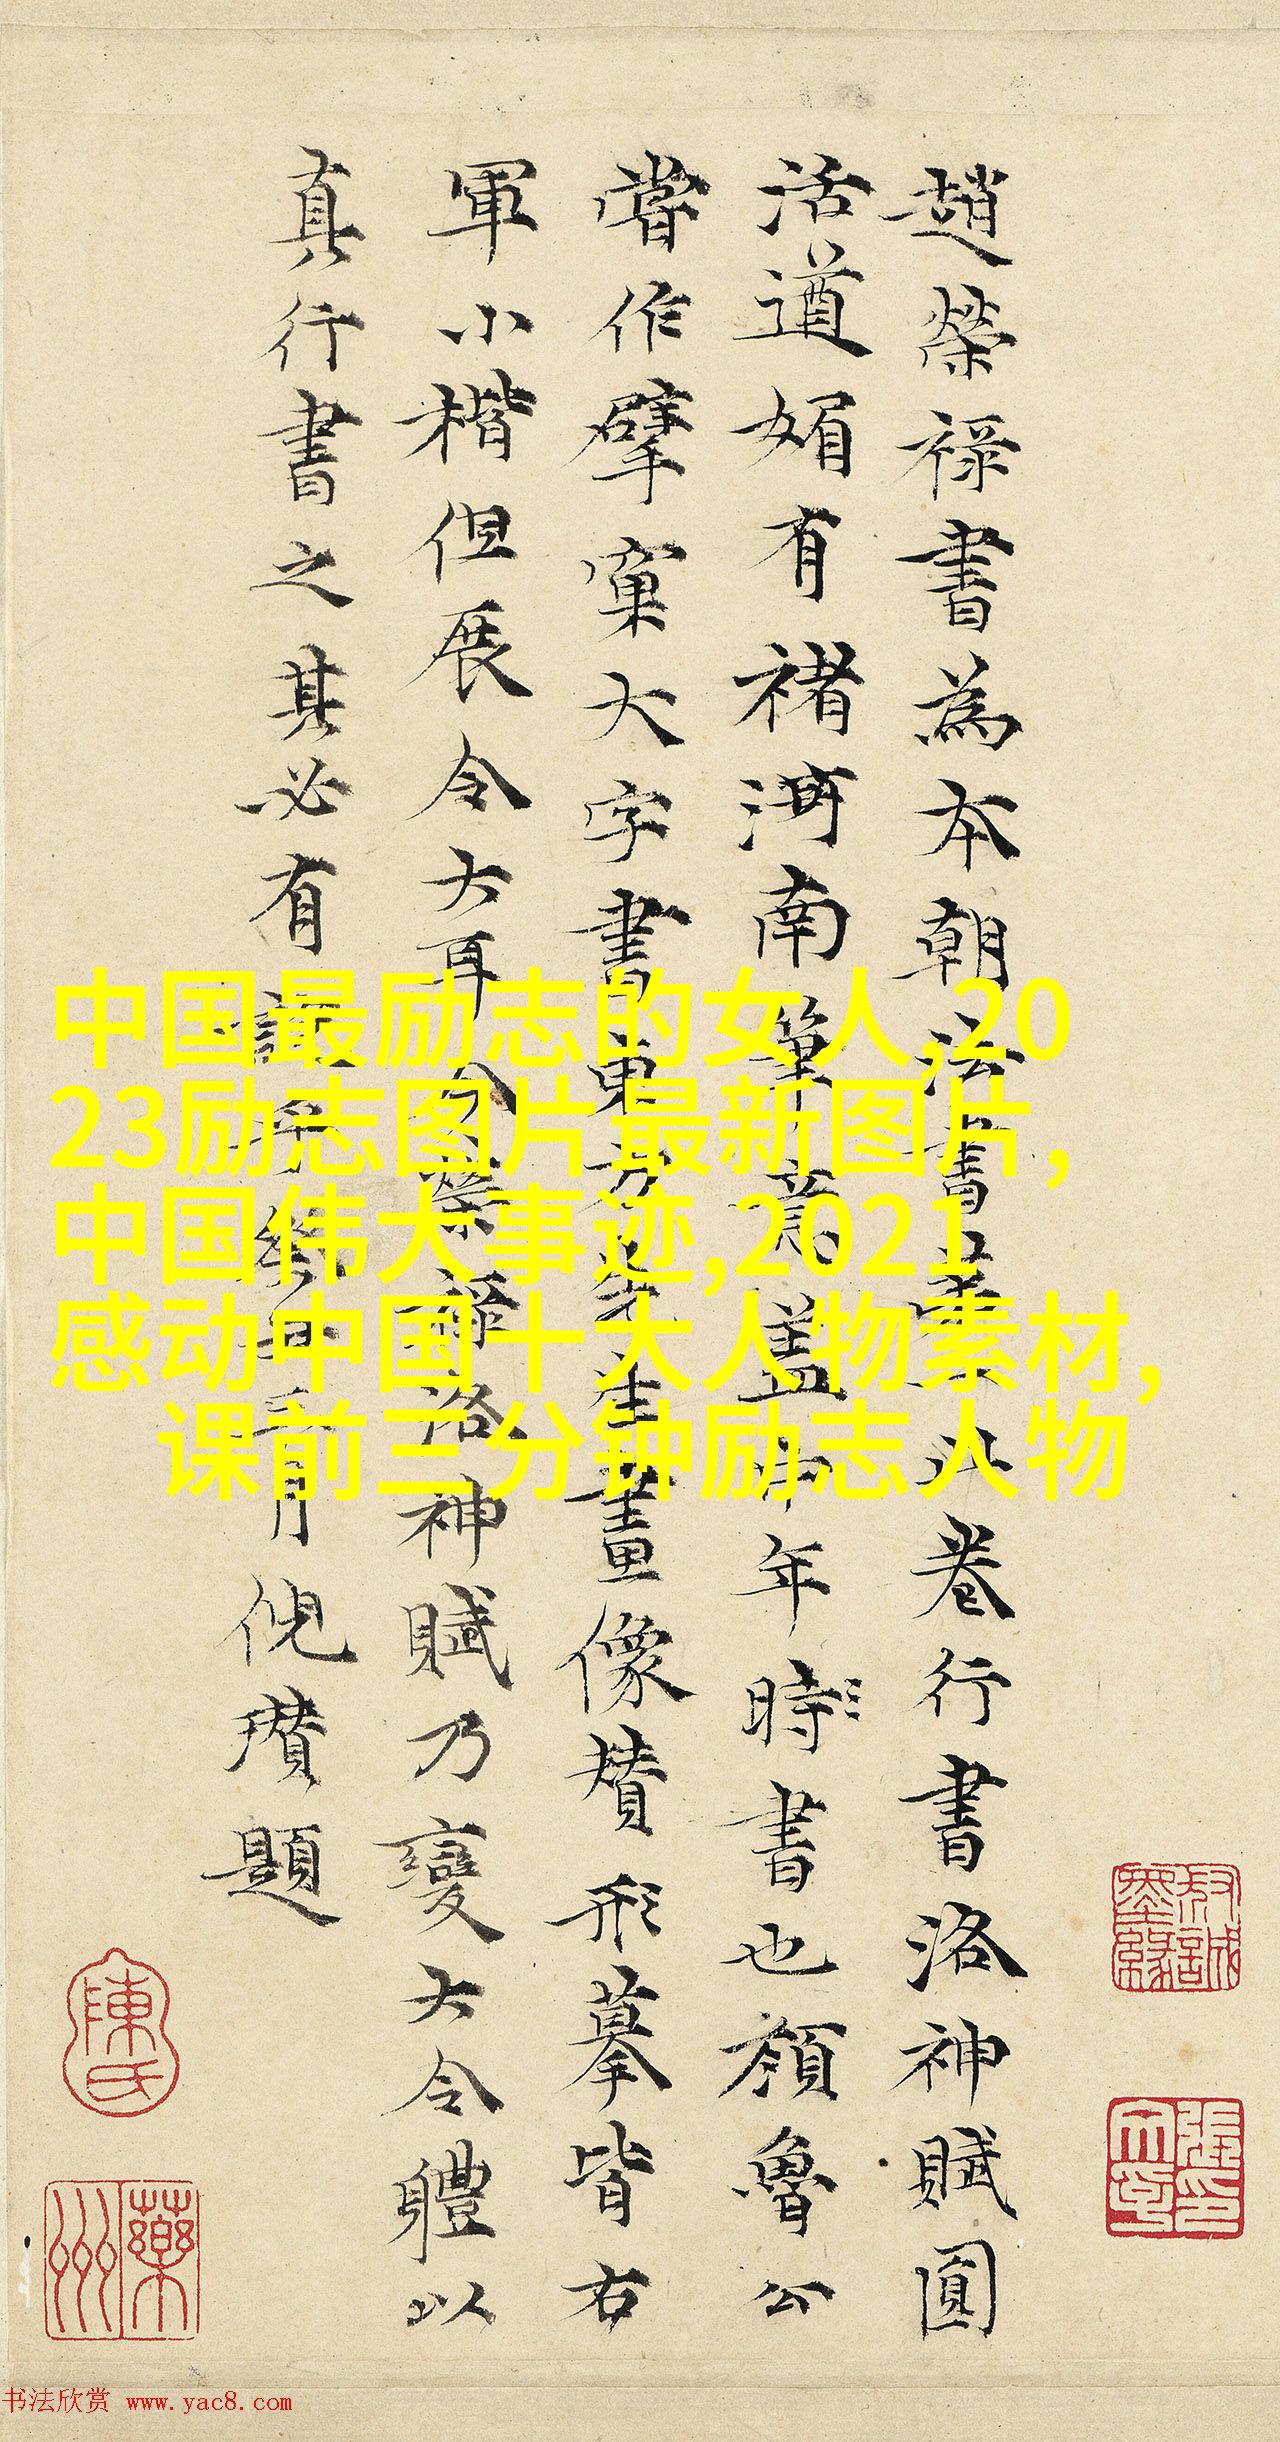 趙榮祿書為本朝法書第一此卷行書洛神賦圓
活遒媚有褚河南筆意蓋中年時書也顏魯公
嘗作擘窠大字書東方先生畫像贊形摹皆右
軍小楷但展令大耳今榮祿洛神賦乃變大令體以
真行書之其必有 乎 月倪瓚題
陳氏
中国最励志的女人,20
23励志图片最新图片,
中国伟大事迹,2021
感动中国十大人物素材,
课前三分钟励志人物
书法欣赏 www.yac8.com